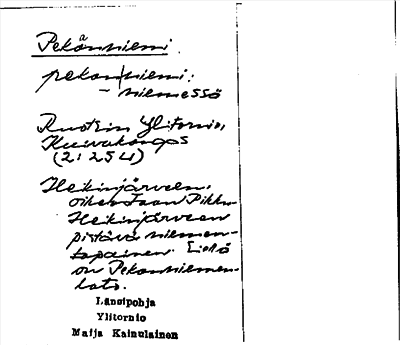 Pekanniemi
pekan|niemi:
– niemessä
Ruotsin Ylitornio,
Kuivakangas
(2: 254)
Heikinjärveen,
oikeastaan Pikku-
Heikinjärveen
pistävä niemen-
tapainen. Siellä
on Pekanniemen-
lato.
Länsipohja
Ylitornio
Maija Kainulainen